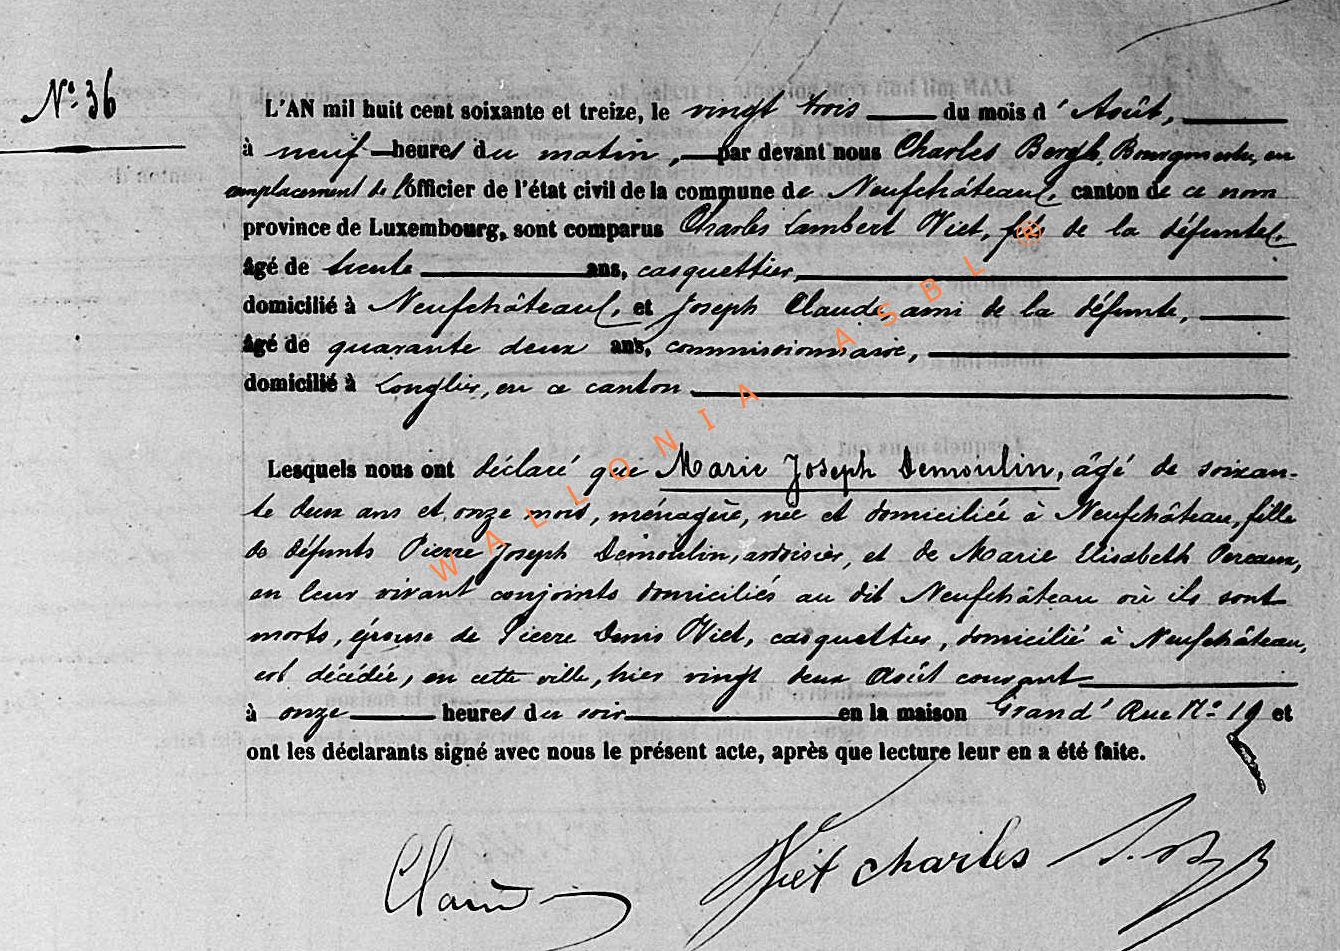 N° 36
L'AN mil huit cent soixante et treize, le vingt trois du mois d' Août,
à neuf heures du matin, par devant nous Charles Bergh, Bourgmestre, en
remplacement de l'Officier de l'état civil de la commune de Neufchâteau, canton de ce nom
province de Luxembourg, sont comparus Charles Lambert Wiet, fils de la défunte,
âgé de trente ans, casquettier,
domicilié à Neufchâteau, et Joseph Claude, ami de la défunte,
âgé de quarante deux ans, commissionnaire,
domicilié à Longlier, en ce canton
Lesquels nous ont déclaré que Marie Joseph Demoulin, âgé de soixan-
te deux ans et onze mois, ménagère, née et domiciliée à Neufchâteau, fille
de défunts Pierre Joseph Demoulin, ardoisier, et de Marie Elisabeth
en leur vivant conjoints domiciliés au dit Neufchâteau où ils sont
morts, épouse de Pierre Denis Wiet, casquettier, domicilié à Neufchâteau,
est décédée, en cette ville, hier vingt deux Août courant
à onze heures du soir en la maison Grand' Rue N° 19 et
ont les déclarants signé avec nous le présent acte, après que lecture leur en a été faite.
Wiet charles
WALLONIA ASBL ®